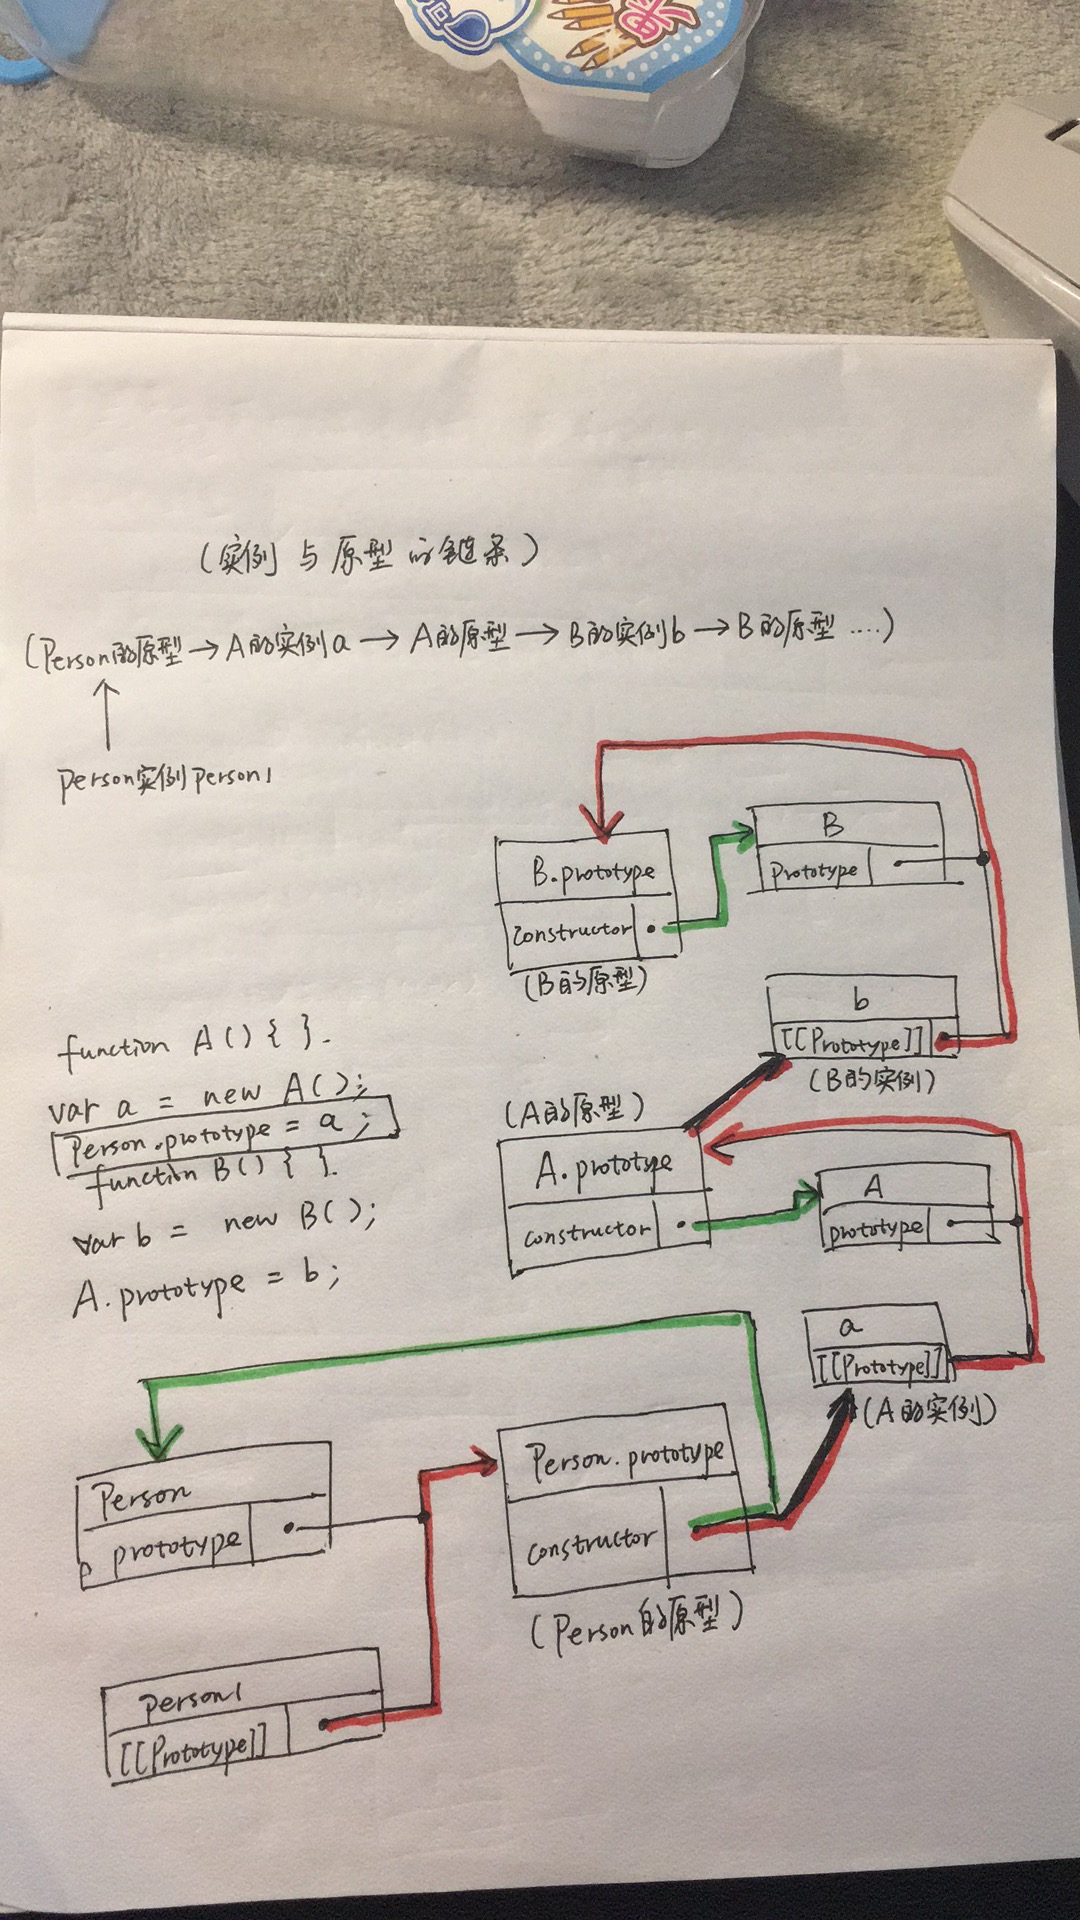 (实例与原型的链条)
(Person的原型→A的实例a→A的原型→B的实例b→B的原型....)
person实例person1
B
B.prototype
prototype
constructor
(B的原型)
b
[[Prototype]]
(B的实例)
function A(){ }.
var a = new A();
Person.prototype = a;
function B(){ }.
var b = new B();
A.prototype = b;
(A的原型)
A.prototype
A
constructor
prototype
a
[[Prototype]]
(A的实例)
Person
prototype
Person.prototype
constructor
(Person的原型)
person1
[[Prototype]]